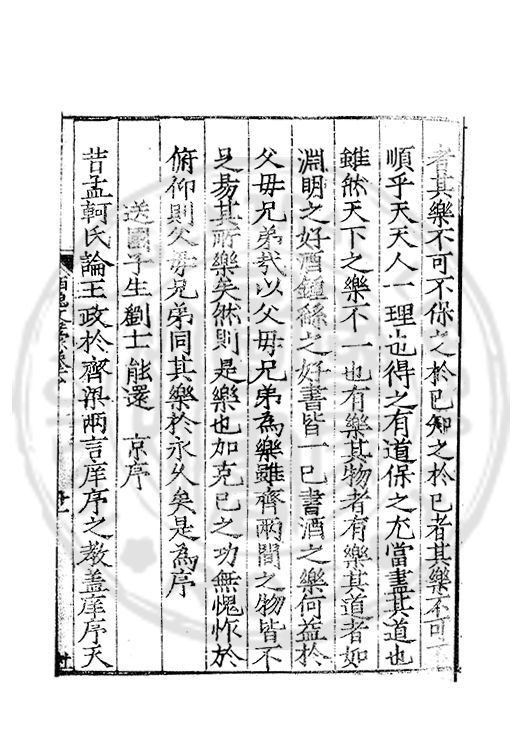 者其樂不可不保之於己知之於己者其樂不可
順乎天天人一理也得之有道保之尤當盡其道也
雖然天下之樂不一也有樂其物者有樂其道者如
淵明之好酒鍾繇之好書皆一己書酒之樂何益於
父母兄弟㢤以父母兄弟為樂雖齊兩間之物皆不
足昜其所樂矣然則是樂也加克己之功無愧怍於
俯仰則父母兄弟同其樂於永久矣是為序
送國子生劉士能還 京序
昔孟軻氏論王政於齊梁兩言庠序之教盖庠序天